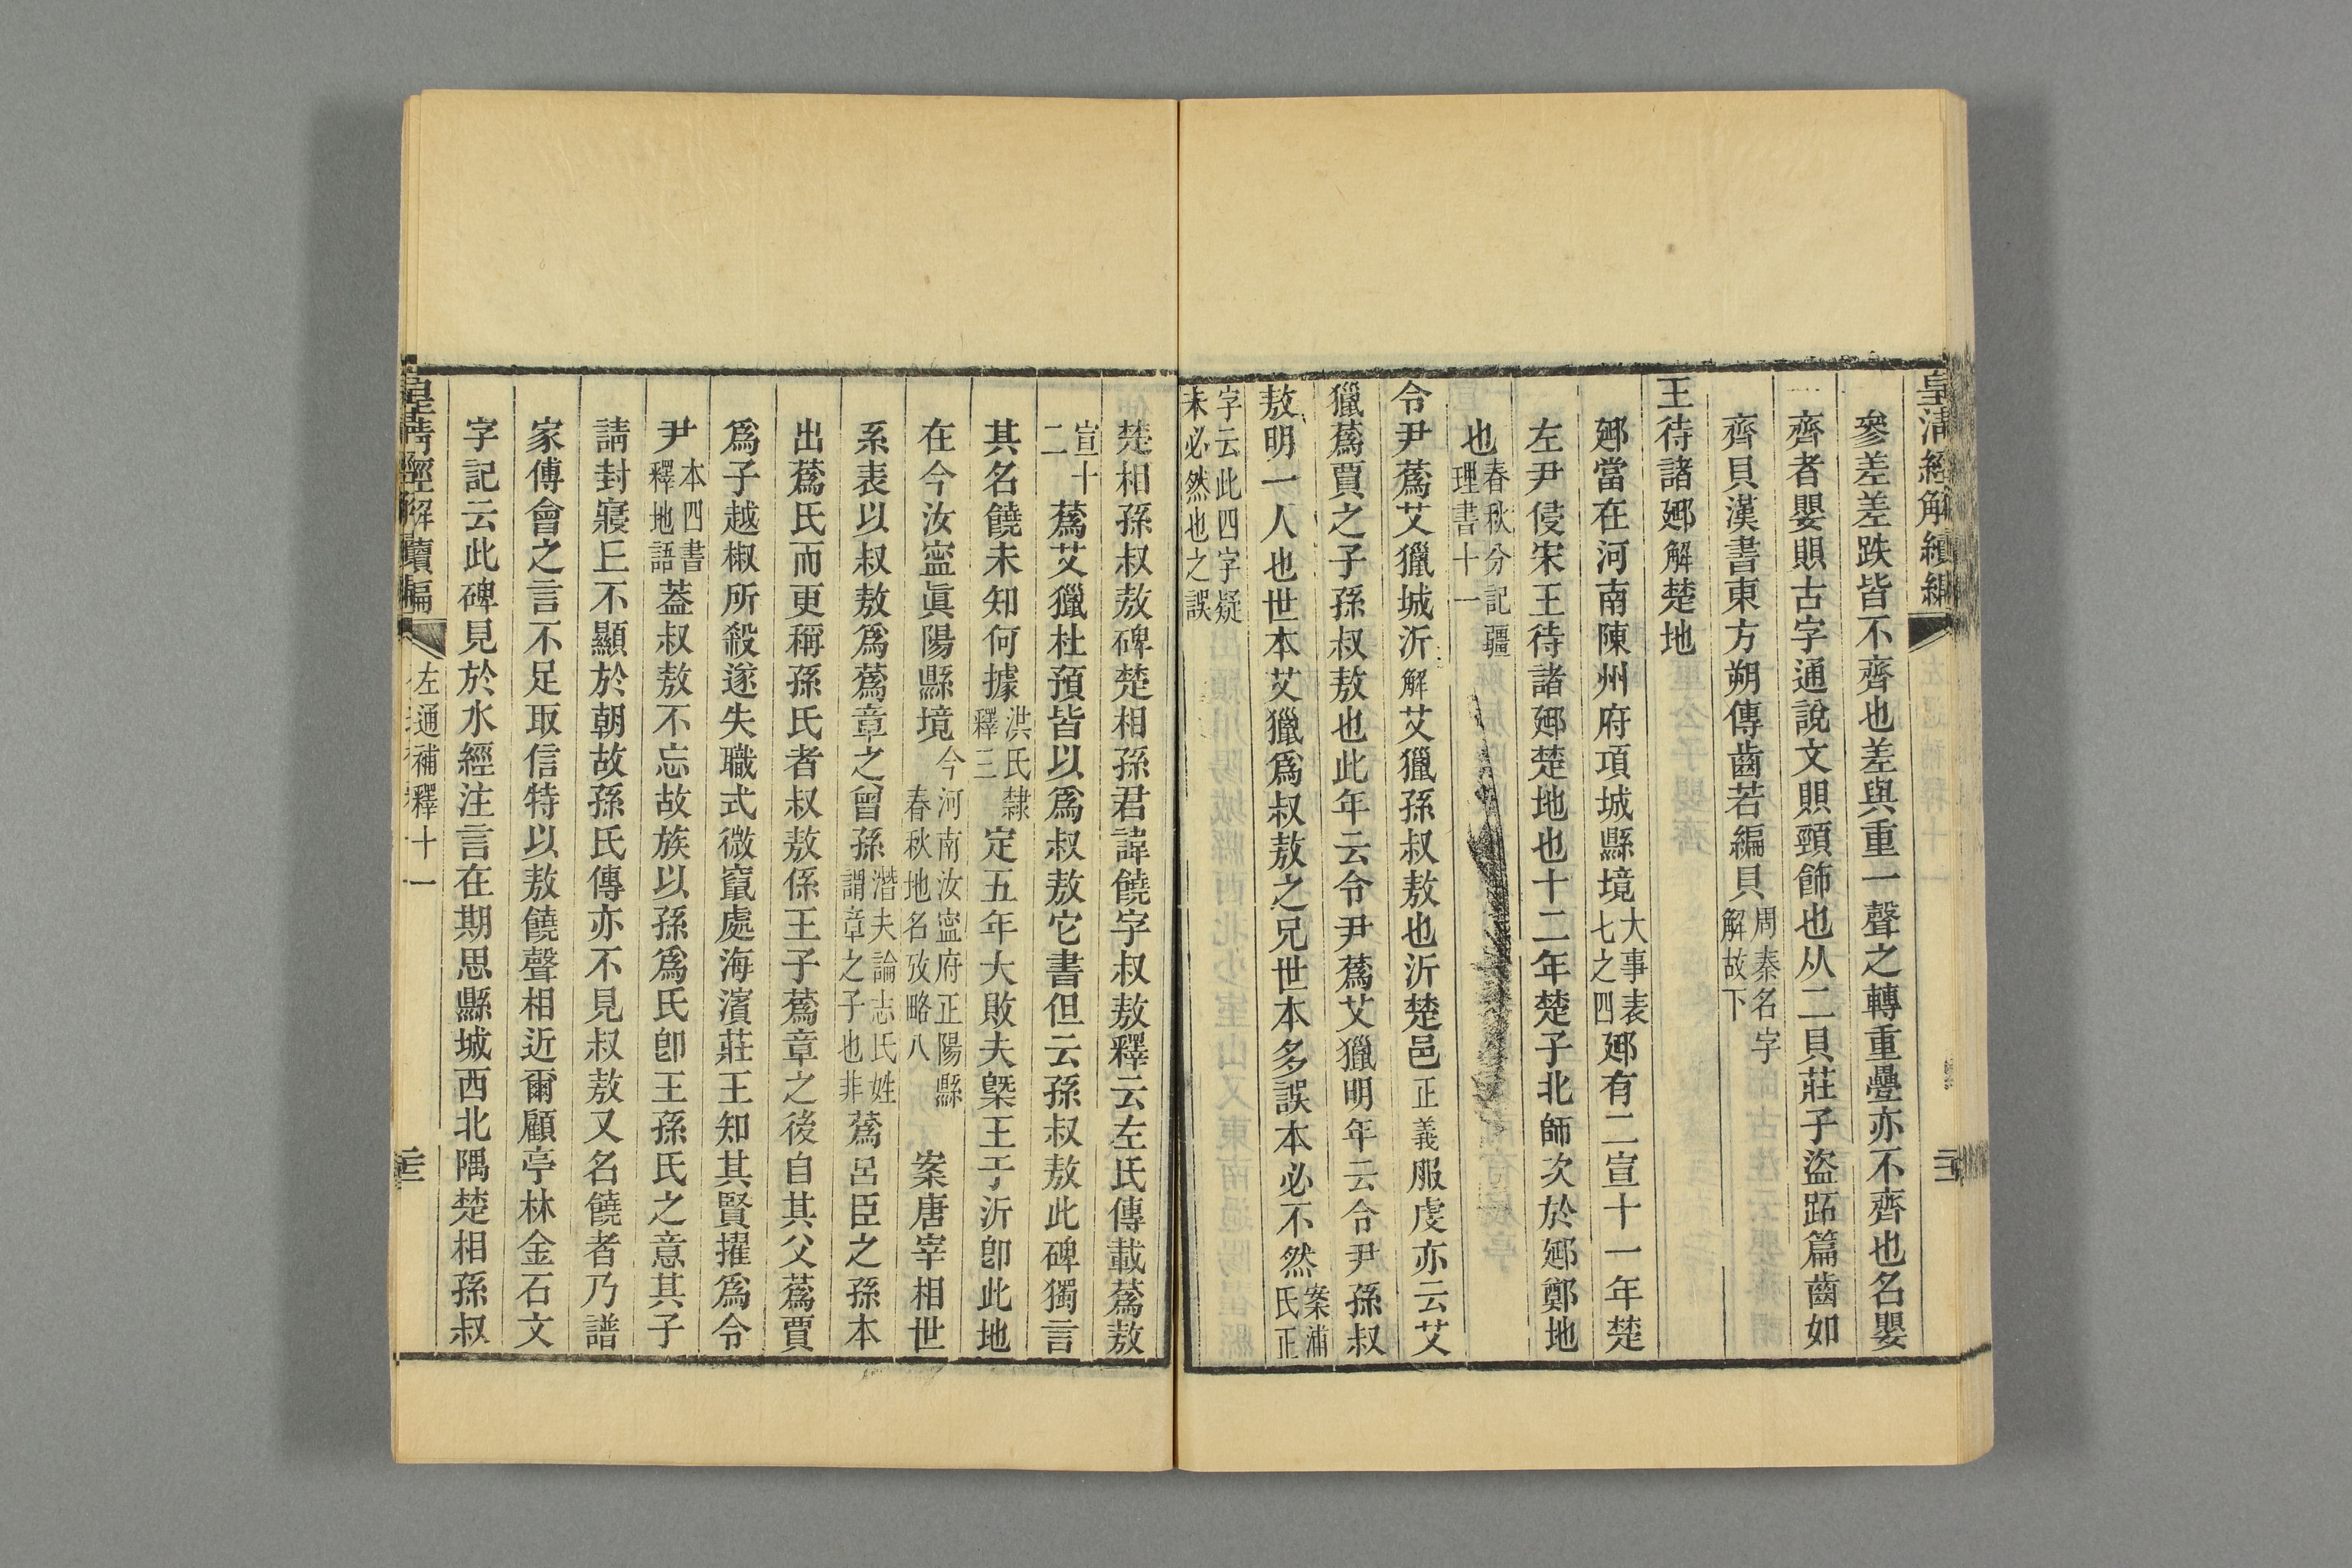 皇清經解續編
參差差跌皆不齊也差與重一聲之轉重疊亦不齊也名嬰
齊者嬰賏古字通說文賏頸飾也从二貝莊子盜跖篇齒如
齊貝漢書東方朔傳齒若編貝周秦名字解故下
王待諸郔解楚地
郔當在河南陳州府項城縣境大事表七之四郔有二宣十一年楚
左尹侵宋王待諸郔楚地也十二年楚子北師次於郔鄭地
也春秋分記疆理書十一
令尹蔿艾獵城沂解艾獵孫叔敖也沂楚邑正義服虔亦云艾
獵蔿賈之子孫叔敖也此年云令尹蔿艾獵明年云令尹孫叔
敖明一人也世本艾獵爲叔敖之兄世本多誤本必不然案浦氏正
字云此四字疑未必然也之誤
楚相孫叔敖碑楚相孫君諱饒字叔敖釋云左氏傳載蔿敖
宣十二蔿艾獵杜預皆以爲叔敖它書但云孫叔敖此碑獨言
其名饒未知何據洪氏隸釋三定五年大敗夫槩王于沂卽此地
在今汝寍眞陽縣境今河南汝寍府正陽縣春秋地名攷略八案唐宰相世
系表以叔敖爲蔿章之曾孫潛夫論志氏姓謂章之子也非蔿呂臣之孫本
出蔿氏而更稱孫氏者叔敖係王子蔿章之後自其父蔿賈
爲子越椒所殺遂失職式微竄處海濱莊王知其賢擢爲令
尹本四書釋地語蓋叔敖不忘故族以孫爲氏卽王孫氏之意其子
請封寢丘不顯於朝故孫氏傳亦不見叔敖又名饒者乃譜
家傅會之言不足取信特以敖饒聲相近爾顧亭林金石文
字記云此碑見於水經注言在期思縣城西北隅楚相孫叔
皇清經解續編
左通補釋十一